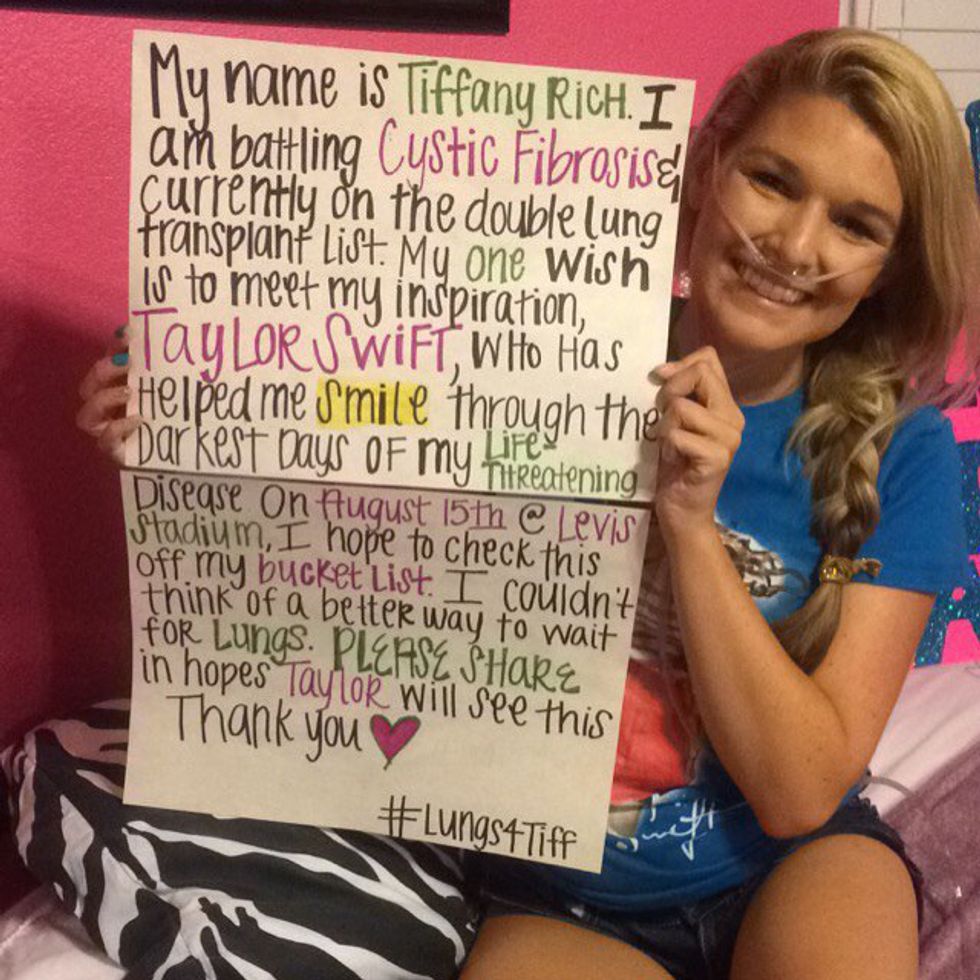 My name is Tiffany Rich. I
am battling Cystic Fibrosis &
currently on the double lung
transplant list. My one wish
is to meet my inspiration,
Taylor Swift, who has
helped me smile through the
darkest days of my Life-
Threatening
Disease On August 15th @ Levis
Stadium, I hope to check this
off my bucket list. I couldn't
think of a better way to wait
for Lungs. PLEASE SHARE
in hopes Taylor will see this
Thank you
#Lungs4Tiff
Swift